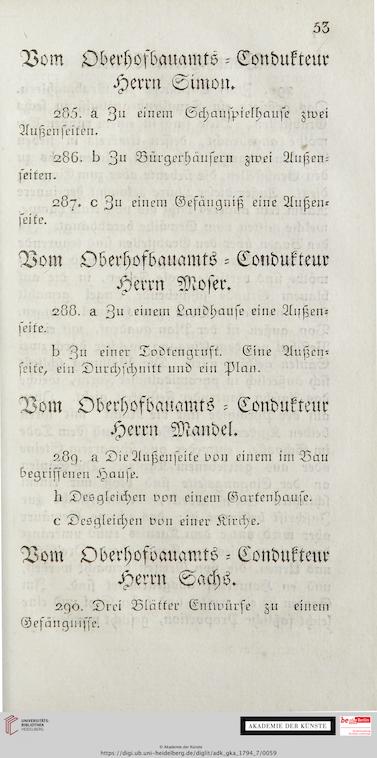 53
Vom Oberhofbauamts = Condukteur
Herrn Simon.
285. a Zu einem Schauspielhause zwei
Außenseiten.
286. b Zu Bürgerhäusern zwei Außen=
seiten.
287. c Zu einem Gefängniß eine Außen=
seite.
Vom Oberhofbauamts = Condukteur
Herrn Moser.
288. a Zu einem Landhause eine Außen=
seite.
b Zu einer Todtengruft. Eine Außen=
seite, ein Durchschnitt und ein Plan.
Vom Oberhofbauamts = Condukteur
Herrn Mandel.
289. a Die Außenseite von einem im Bau
begriffenen Hause.
h Desgleichen von einem Gartenhause.
c Desgleichen von einer Kirche.
Vom Oberhofbauamts = Condukteur
Herrn Sachs.
290. Drei Blätter Entwürfe zu einem
Gefängnisse.
UNIVERSITÄTS-
BIBLIOTHEK
HEIDELBERG
AKADEMIE DER KÜNSTE
be Berlin
© Akademie der Künste
https://digi.ub.uni-heidelberg.de/diglit/adk_gka_1794_7/0059